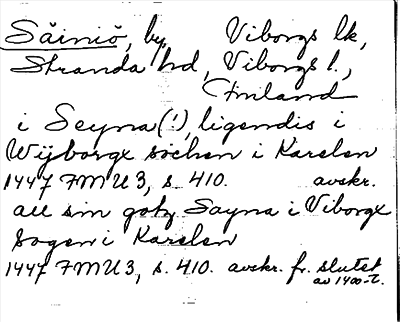 Säiniö, by, Viborgs lk,
Stranda hd, Viborgs l.,
Finland
i Seyna(!), ligendis i
Wijborgx sochen i Karelen
1447 FMU 3, s. 410. avskr.
all sin gotz Sayna i Viborgx
sogen i Karelen
1447 FMU 3, s. 410. avskr. fr. slutet
av 1400-t.